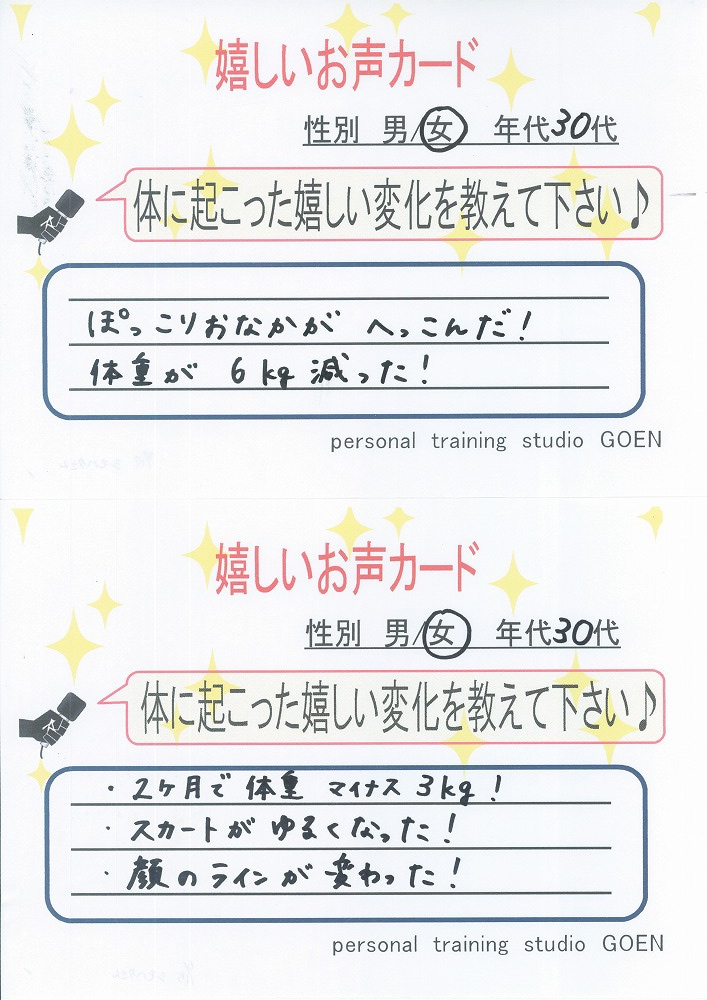 嬉しいお声カード
性別 男/女 年代30代
体に起こった嬉しい変化を教えて下さい♪
ぽっこりおなかが へっこんだ!
体重が 6kg 減った!
personal training studio GOEN
嬉しいお声カード
性別 男/女 年代30代
体に起こった嬉しい変化を教えて下さい♪
・2ケ月で体重 マイナス 3kg!
・スカートが ゆるくなった!
・顔のラインが変わった!
personal training studio GOEN